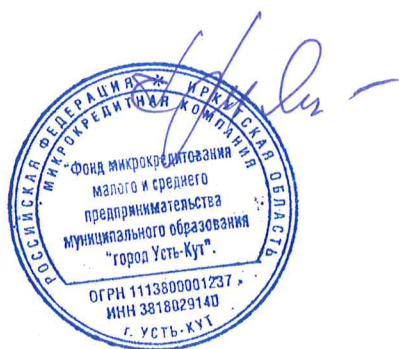 РОССИЙСКАЯ ФЕДЕРАЦИЯ * ИРКУТСКАЯ ОБЛАСТЬ
МИКРОКРЕДИТНАЯ КОМПАНИЯ
"Фонд микрокредитования
малого и среднего
предпринимательства
муниципального образования
"город Усть-Кут".
ОГРН 1113800001237
ИНН 3818029140
г. УСТЬ-КУТ